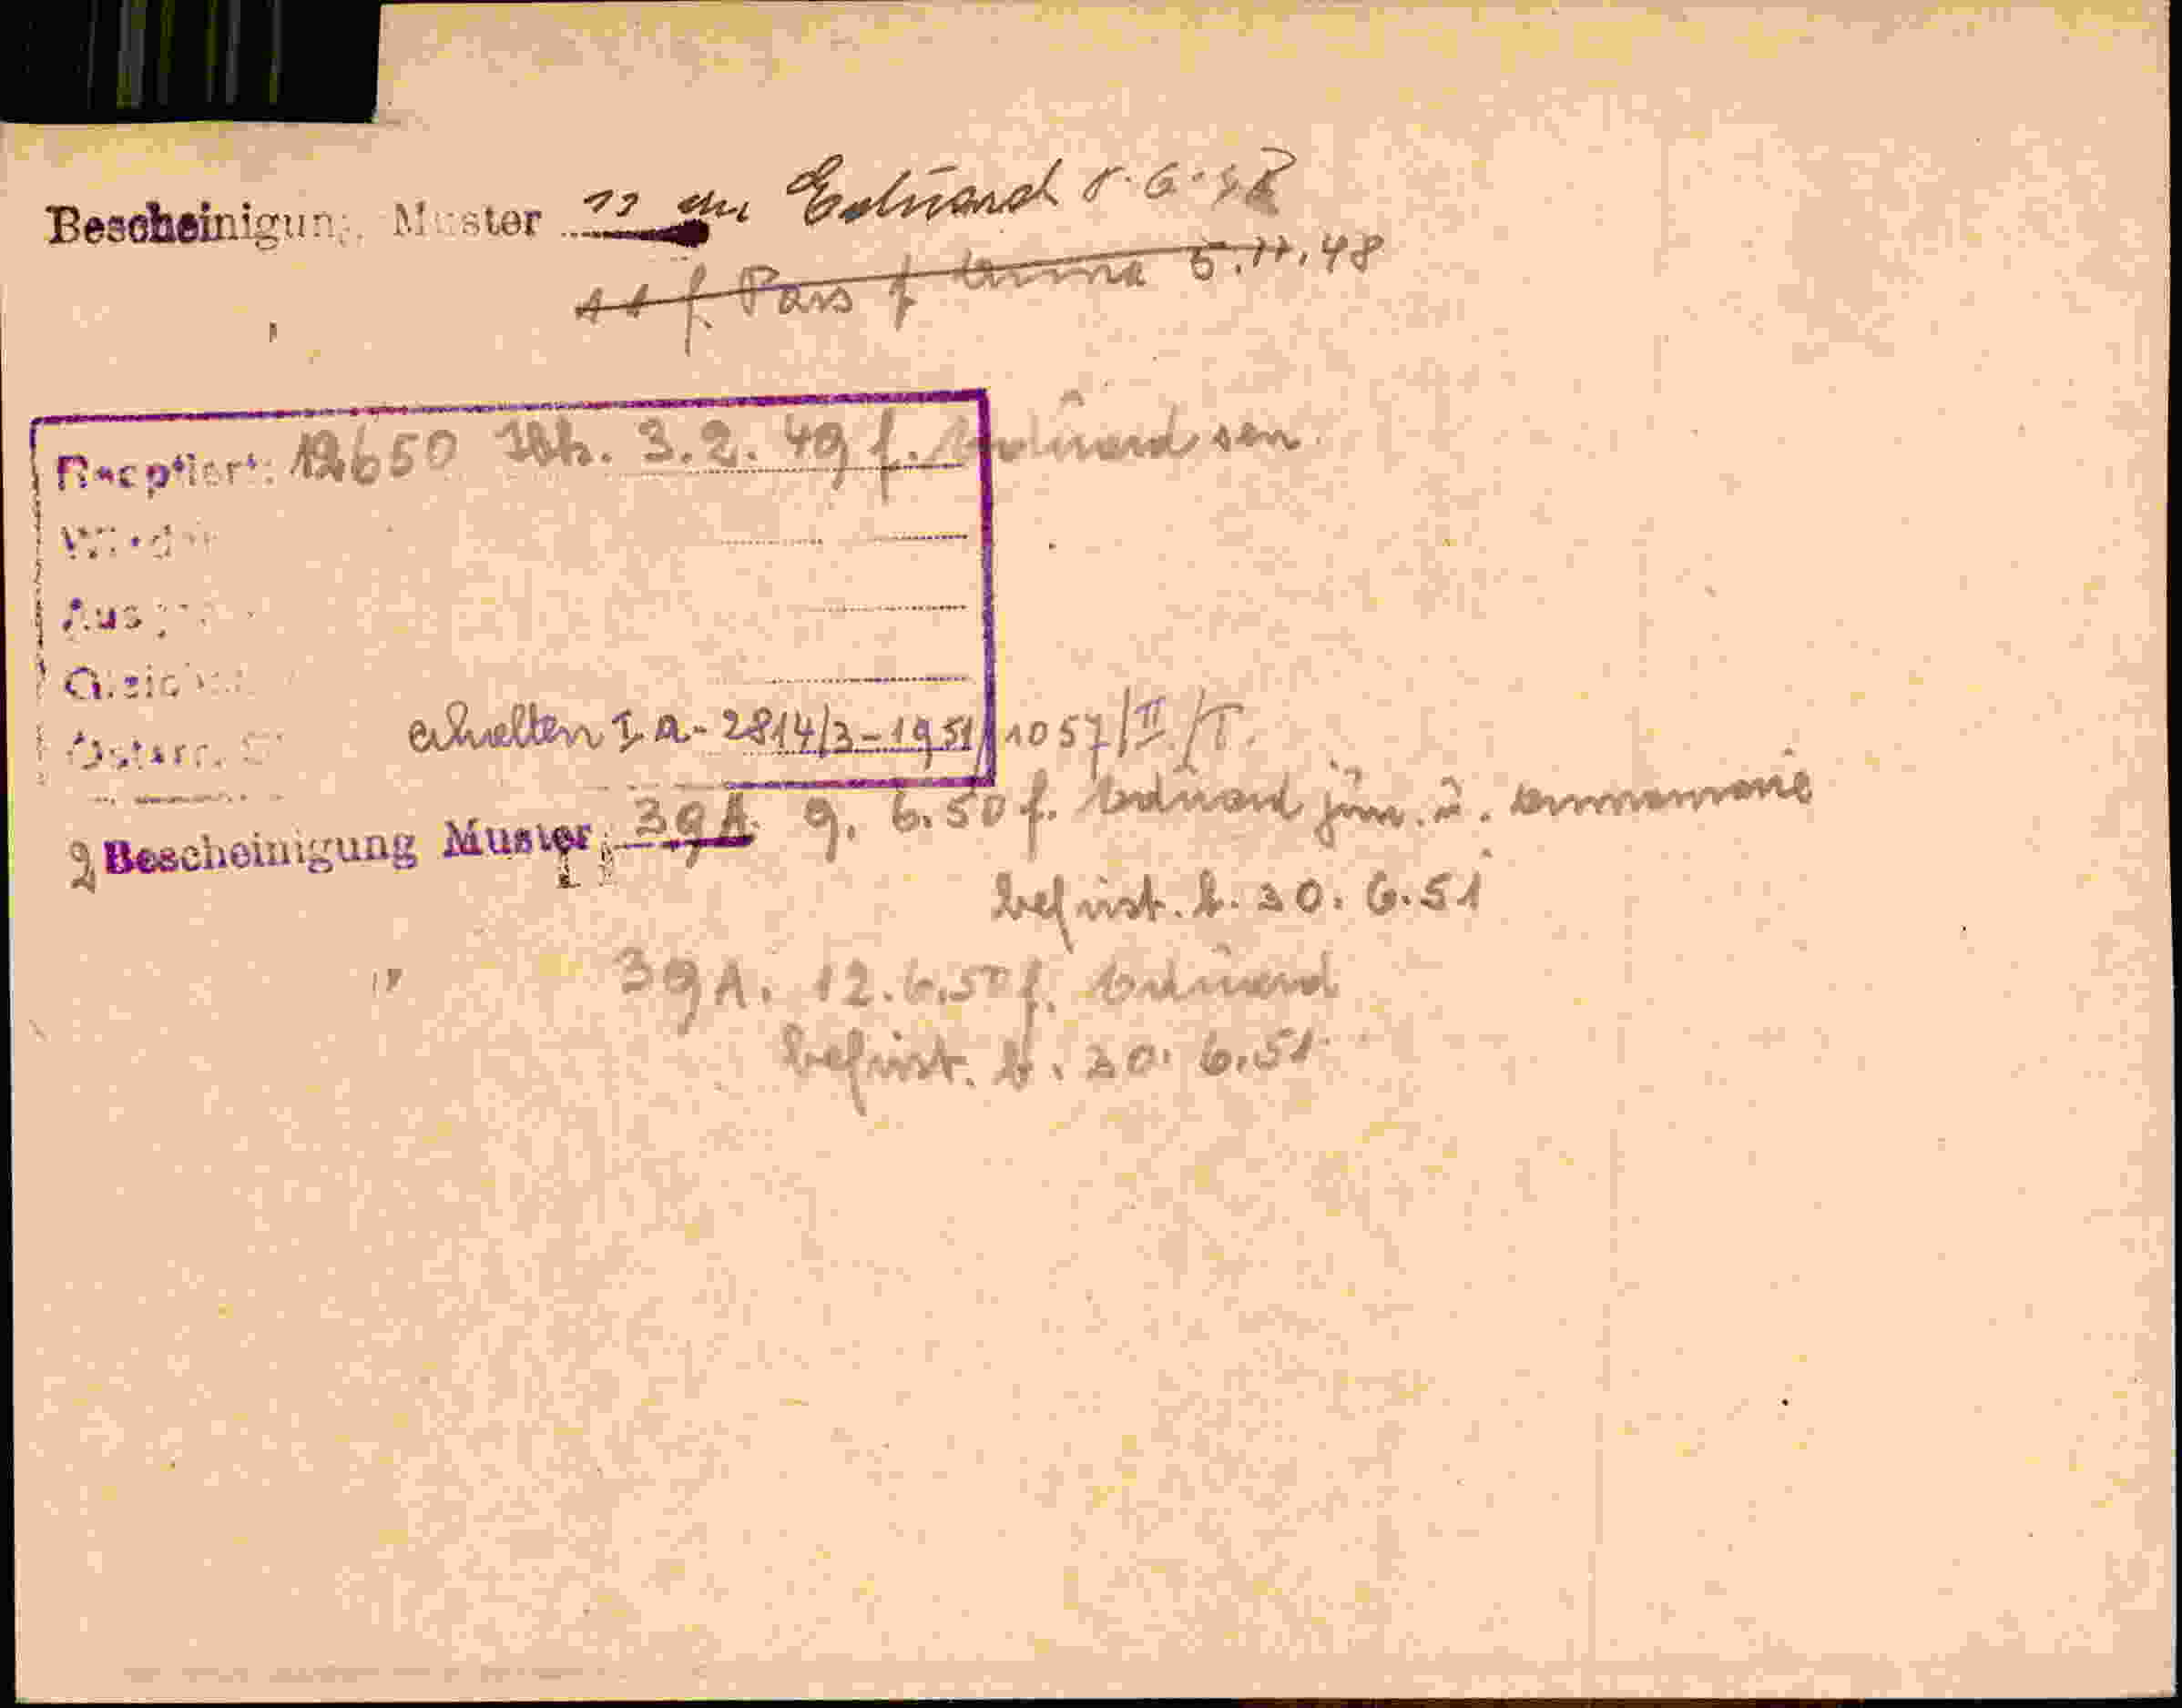 Bescheinigung Muster 11 an Eduard 8.6.48
11 f. Pass f. Anna 5.11.48
Reoptiert: 12650 3.2.49 f. Eduard sen.
erhalten I a-2814/3-1951/1057/II/T.
2 Bescheinigung Muster 39A. 9. 6.50 f. Eduard jun. u. Annemarie
befrist. b. 30. 6.51
" 39A. 12.6.50 f. Eduard
befrist. b. 30. 6.51